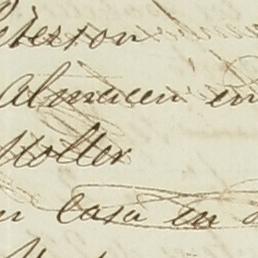 Peterson
Almacen en
Moller
en casa en